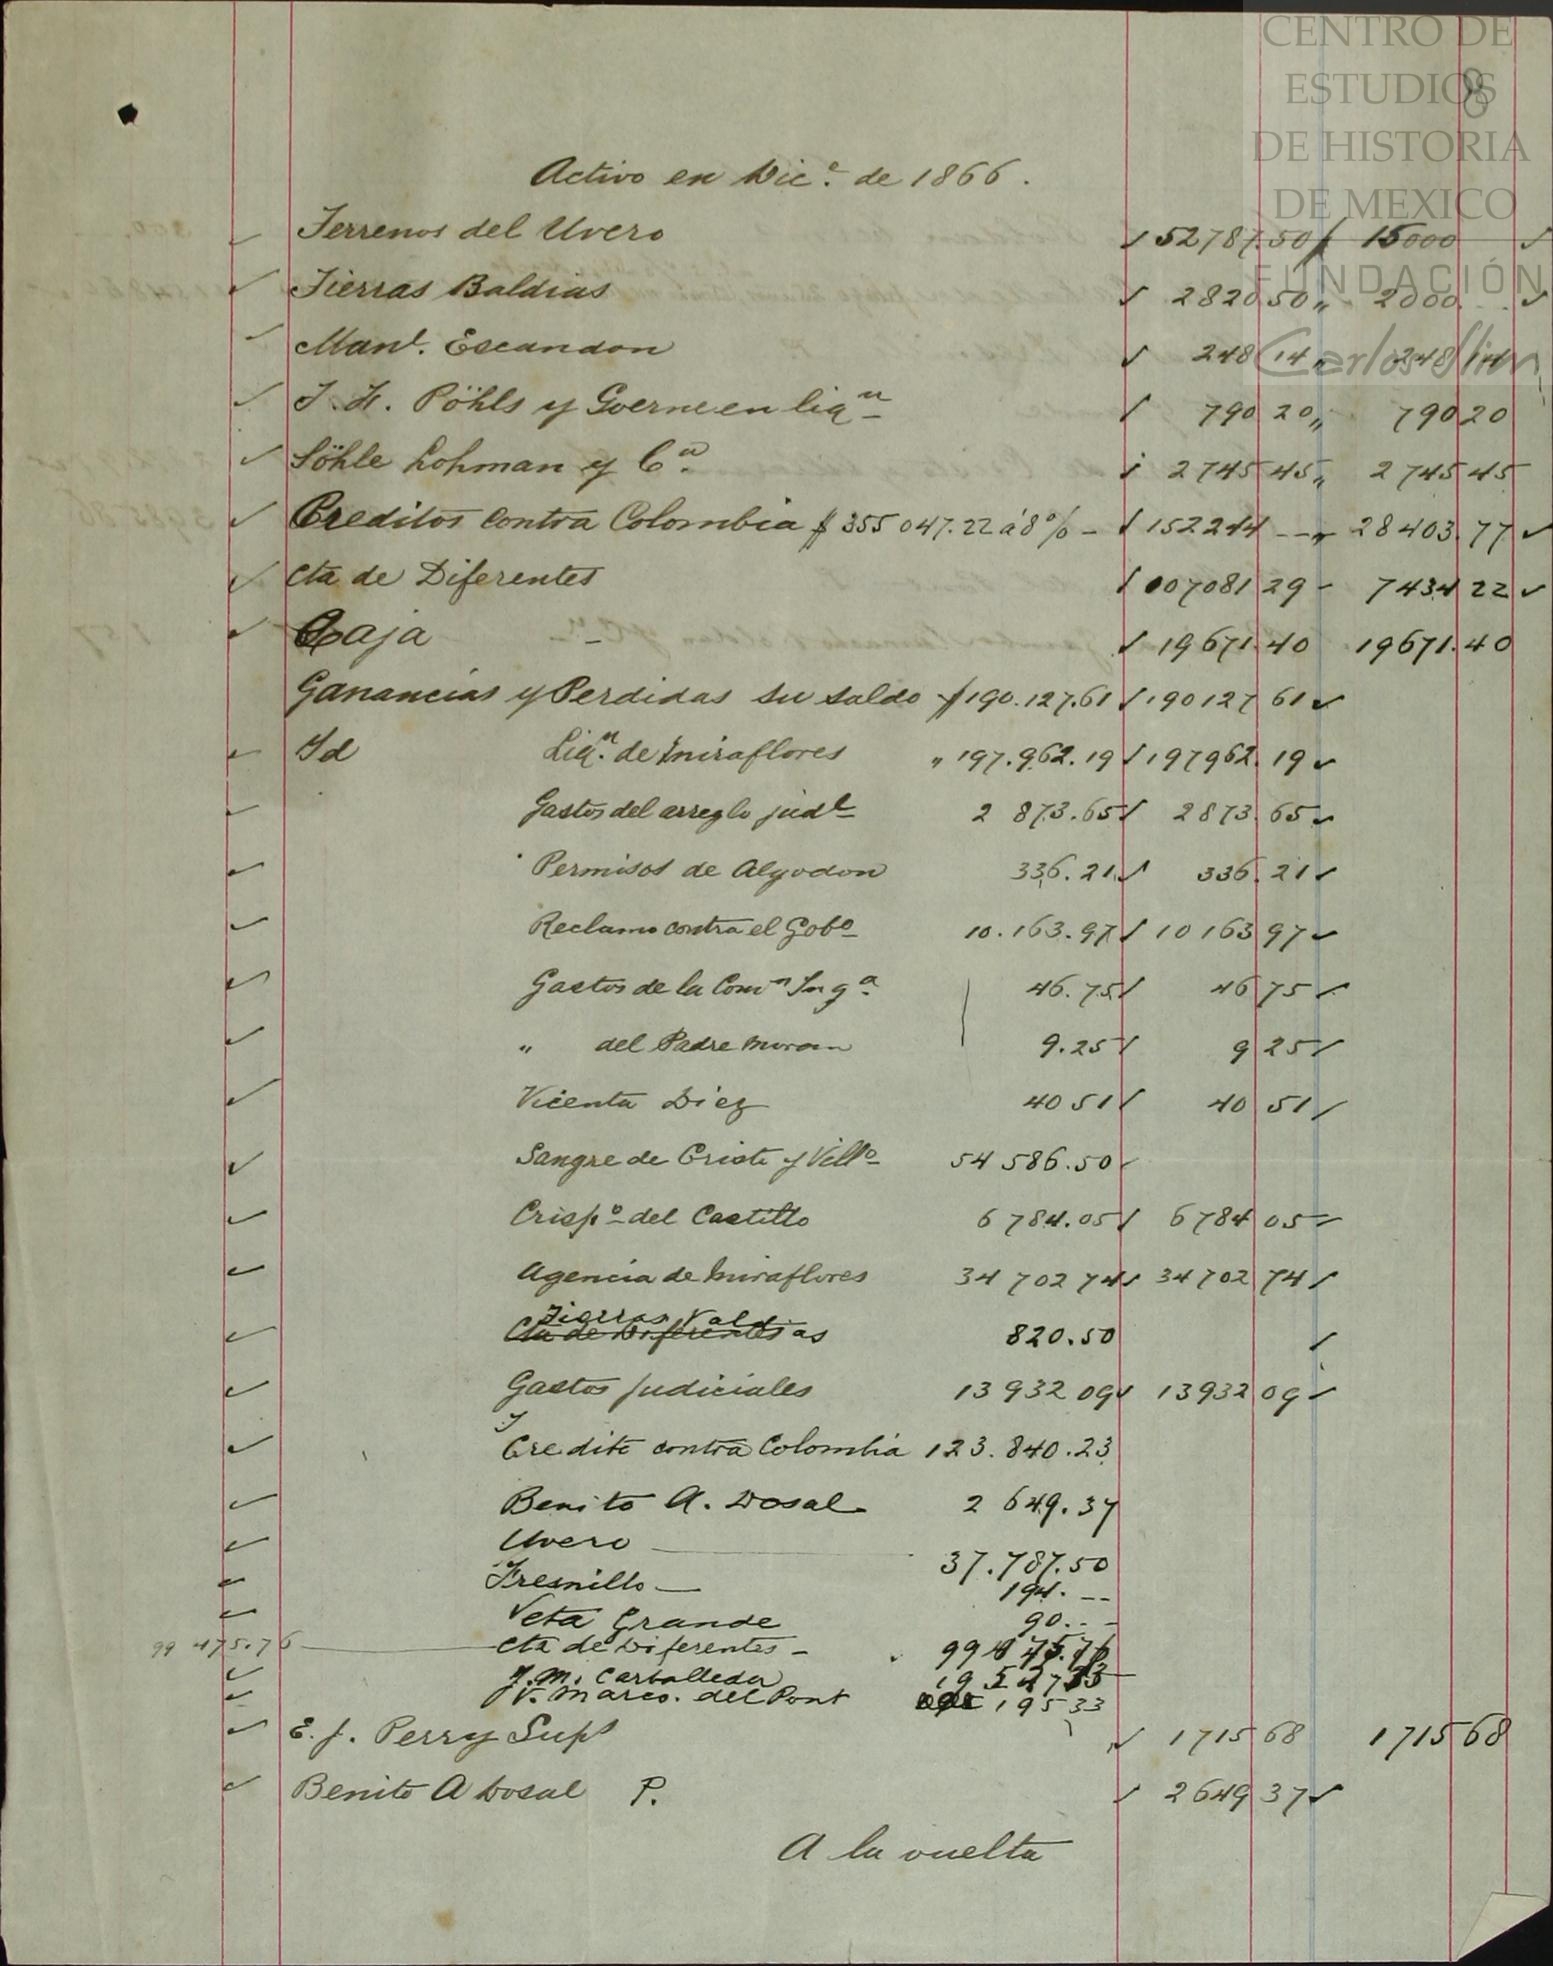 CENTRO DE
ESTUDIOS
DE HISTORIA
DE MEXICO
FUNDACIÓN
Carlos Slim
8
Activo en Dic.e de 1866.
Terrenos del Uvero 52787.50 15000
Tierras Baldias 2820 50 " 2000
Manl. Escandon 248 14 " 248 14
Pöhls y Goerne en liqn 790 20 " 790 20
Söhle Lohman y Ca. 2745 45 " 2745 45
Creditos contra Colombia $ 355 047.22 á 8% - 152244 -- " 28403 77
Cta de Diferentes 07081 29 - 7434 22
Caja - 19671.40 19671.40
Ganancias y Perdidas su saldo $190.127.61 190127 61
Id Liqn. de Miraflores " 197.962.19 197962.19
Gastos del arreglo judl 2 873.65 2873.65
Permisos de Algodon 336.21 336.21
Reclamo contra el Gobo 10.163.97 10163 97
Gastos de la Comn Inga. 46.75 46 75
" del Padre Moran 9.25 9 25
Vicenta Diez 40 51 40 51
Sangre de Cristo y Villo 54 586.50
Crispo del Castillo 6 784.05 6784 05
Agencia de Miraflores 34 702 74 34702 74
Tierras Valdias
Cta de Diferentes 820.50
Gastos Judiciales 13 932 09 13932 09
Credito contra Colombia 123.840.23
Benito A. Dosal 2 649.37
Uvero 37.787.50
Fresnillo 194. --
Veta Grande 90. --
99 475.76 Cta de Diferentes - 99475.76
J.M. Carballeda
V. Marco. del Pont 195 33
E. J. Perry Supl 1715 68 1715 68
Benito A Dosal P. 2649 37
A la vuelta